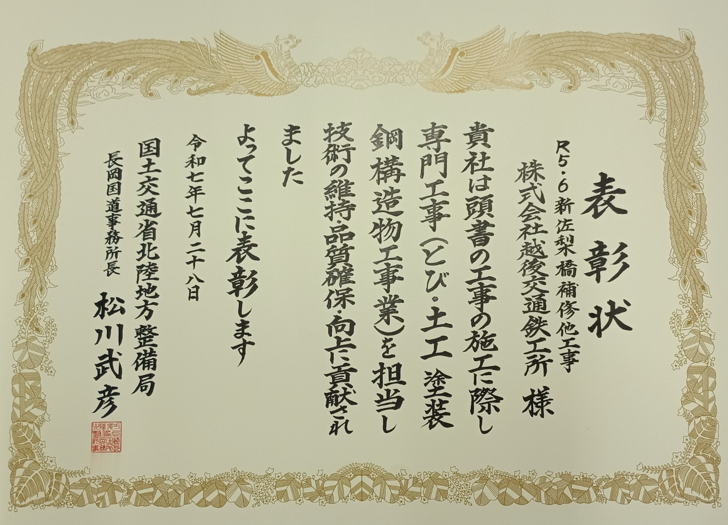 表彰状
R5・6新佐梨橋補修他工事
株式会社越後交通鉄工所 様
貴社は頭書の工事の施工に際し
専門工事(とび・土工 塗装
鋼構造物工事業)を担当し
技術の維持・品質確保・向上に貢献され
ました
よってここに表彰します
令和七年七月二十八日
国土交通省北陸地方整備局
長岡国道事務所長 松川武彦